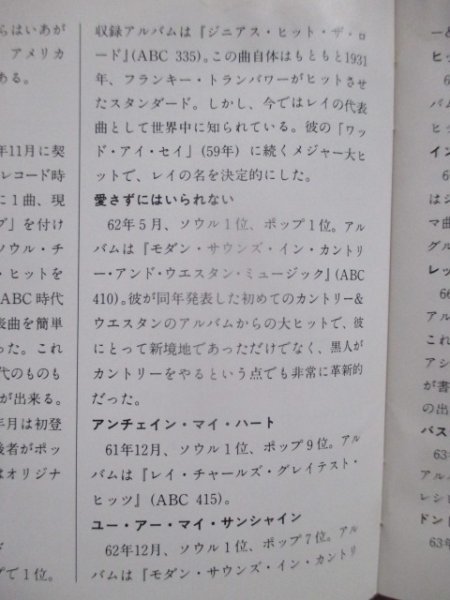 らはいあが
アメリカ
ある。
年11月に契
レコード時
に1曲、現
ブ」を付け
ソウル・チ
・ヒットを
ABC時代
表曲を簡単
った。これ
代のものも
が出来る。
年月は初登
後者がポッ
はオリジナ
プで1位。
収録アルバムは『ジニアス・ヒット・ザ・ロ
ード』(ABC 335)。この曲自体はもともと1931
年、フランキー・トランバワーがヒットさせ
たスタンダード。しかし、今ではレイの代表
曲として世界中に知られている。彼の「ワッ
ド・アイ・セイ」(59年) に続くメジャー大ヒ
ットで、レイの名を決定的にした。
愛さずにはいられない
62年5月、ソウル1位、ポップ1位。アル
バムは『モダン・サウンズ・イン・カントリ
ー・アンド・ウエスタン・ミュージック』(ABC
410)。彼が同年発表した初めてのカントリー&
ウエスタンのアルバムからの大ヒットで、彼
にとって新境地であっただけでなく、黒人が
カントリーをやるという点でも非常に革新的
だった。
アンチェイン・マイ・ハート
61年12月、ソウル1位、ポップ9位。アル
バムは『レイ・チャールズ・グレイテスト・
ヒッツ』(ABC 415)。
ユー・アー・マイ・サンシャイン
62年12月、ソウル1位、ポップ7位。アル
バムは『モダン・サウンズ・イン・カントリ
ー&
ヒッ
63
バム
ヒッ
イン
はジ
マ曲
グル
レッ
66
アル
これ
アシ
が書
の出
バス
63
アル
レシ
ドン
63年